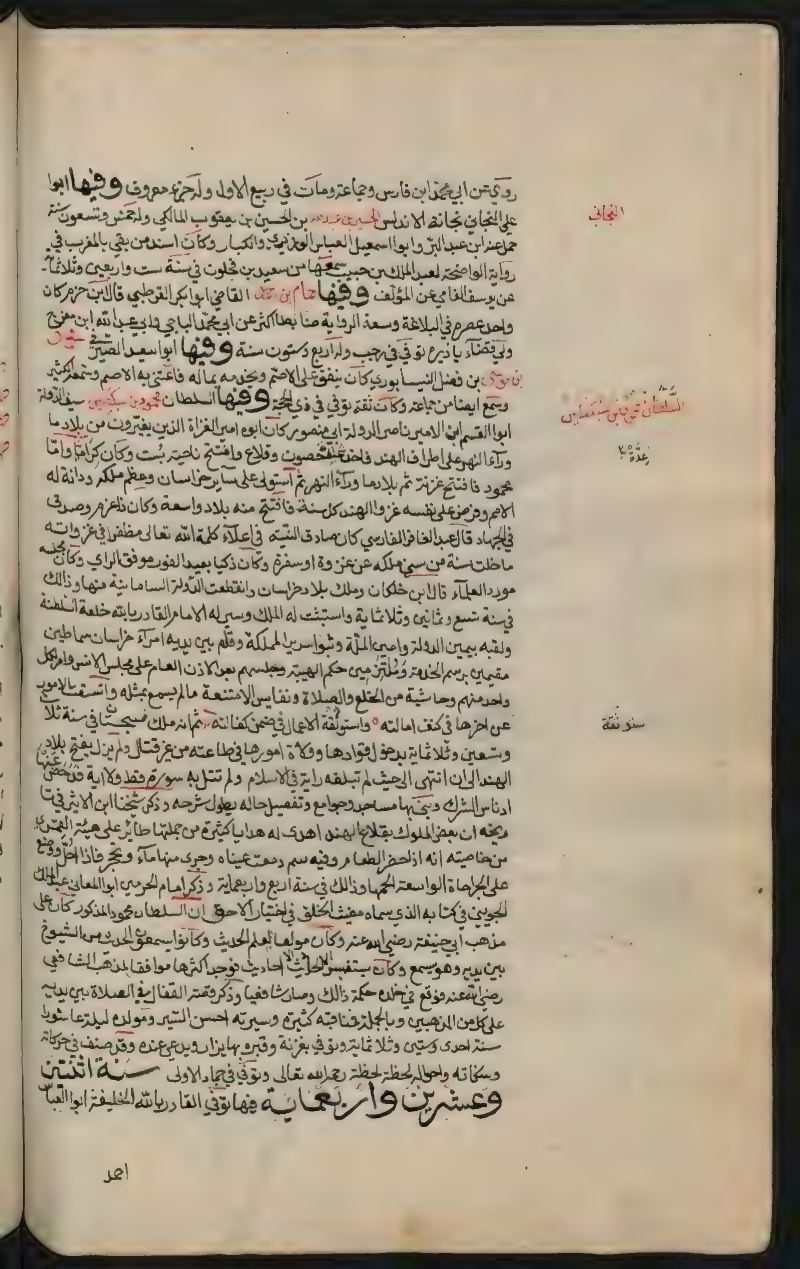 روى عن ابي محمد ابن فارس وجماعة ومات في ربيع الاول وله جزء معروف وفيها ابوا
علي البجاني بجانة الاندلس الحسين بن عبد الله بن الحسين بن يعقوب المالكي وله خمس وتسعون سنة
حمل عنه ابن عبد البر وابوا العباس العذري والكبار وكان اسند من بقي بالمغرب في
رواية الواضحة لعبد الملك بن حبيب سمعها من سعيد بن فحلون في سنة ست واربعين وثلاثماية
عن يوسف المغامي عن المؤلف وفيها حمام بن احمد القاضي ابوا بكر القرطبي قال ابن حزم كان
واحد عصره في البلاغة وسعة الرواية ضابطا اكثر عن ابي محمد الباجي وابي عبد الله ابن مفرج
ولي قضاء يابرة توفي في رجب وله اربع وستون سنة وفيها ابوا سعيد الصيرفي
بن موسى بن فضل النيسابوري كان ينفق على الاصم ويخدمه بماله فاعتنى به الاصم وسمعه الكثير
وسمع ايضا من جماعة وكان ثقة توفي في ذي الحجة وفيها السلطان محمود بن سبكتكين سيف الدولة
ابوا القسم ابن الامير ناصر الدولة ابي منصور كان ابوه امير الغزاة الذين يغيرون من بلاد ما
وراء النهر على اطراف الهند فاخذ عدة حصون وقلاع وافتتح ناحية بست وكان كراميا واما
محمود فافتتح غزنة ثم بلاد ما وراء النهر ثم استولى على ساير خراسان وعظم ملكه ودانة له
الامم وفرض على نفسه غزوا الهند كل سنة فافتتح منه بلاد واسعة وكان ذا عزم وصدق
في الجهاد قال عبد الغافر الفارسي كان صادق النية في اعلاء كلمة الله تعالى مظفرا في غزواته
ما خلت سنة من سني ملكه عن غزوة او سفرة وكان ذكيا بعيد الغور موفق الراي وكان مجلسه
مورد العلماء قال ابن خلكان وملك بلاد خراسان وانقطعت الدولة السامانية منها وذالك
في سنة تسع وثمانين وثلاثماية واستتب له الملك وسير له الامام القادر بالله خلعة السلطنة
ولقبه بيمين الدولة وامين الملة وتبوا سرير المملكة وقام بين يديه امراء خراسان سماطين
مقيمين برسم الخدمة وملتزمين حكم الهيبة وجلسهم بعد الاذن العام على مجلس الانس وامر لكل
واحد منهم وحاشية من الخلع والصلاة ونفايس الامتعة ما لم يسمع بمثله واتسقت الامور
عن اخرها في كنف امالته واستوثقة الاعمال في ضمن كفالته ثم انه ملك سجستان في سنة ثلاث
وتسعين وثلاثماية بدخول قوادها وولاة امورها في طاعته من غير قتال ولم يزل يفتح بلاد
الهند الى ان انتهى الى حيث لم تبلغه راية في الاسلام ولم تتل به سورة قط ولا اية فدحض عنها
ادناس الشرك وبنى بها مساجد وجوامع وتفصيل حاله يطول شرحه وذكر شيخنا ابن الاثير في تا
ريخه ان بعض الملوك بقلاع الهند اهدى له هدايا كثيرة من جملتها طاير على هيئة القمري
من خاصيته انه اذا حضر الطعام وفيه سم دمعت عيناه وجرى منها ماء وتحجر فاذا حك ووضع
على الجراحاة الواسعة الحمها وذالك في سنة اربع واربعماية وذكر امام الحرمين ابوا المعالي عبد الملك
الجويني في كتابه الذي سماه مغيث الخلق في اختيار الاحق ان السلطان محمود المذكور كان على
مذهب ابي حنيفة رضي الله عنه وكان مولعا بعلم الحديث وكانوا يسمعون الحديث من الشيوخ
بين يديه وهو يسمع وكان يستفسر الاحاديث فوجد اكثرها موافقا لمذهب الشافعي
رضي الله عنه فوقع في خلده حكمة ذالك وصار شافعيا وذكر قصة القفال في الصلاة بين يديه
على كل من المذهبين وبالجملة فمناقبه كثيرة وسيرته احسن السير ومولده ليلة عاشورا
سنة احدى وستين وثلاثماية وتوفي بغزنة وقبره بها يزار ويدعى عنده وقد صنف في حركاته
وسكناته واحواله لحظة لحظة رحمه الله تعالى وتوفي في جماد الاولى سنة اثنتين
وعشرين واربعماية فيها توفي القادر بالله الخليفة ابوا العباس
احمد
البجاني
السلطان محمود بن سبكتكين
سنوثقة